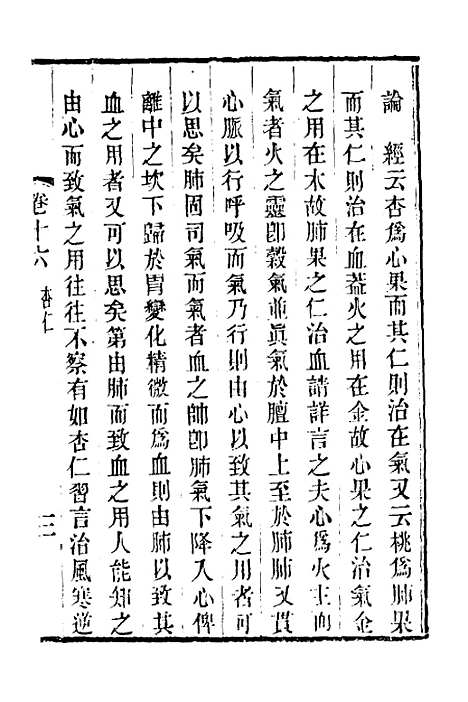 論　經云杏爲心果而其仁則治在氣又云桃爲肺果
而其仁則治在血蓋火之用在金故心果之仁治氣金
之用在木故肺果之仁治血請詳言之夫心爲火主而
氣者火之靈卽穀氣並眞氣於膻中上至於肺肺又貫
心脈以行呼吸而氣乃行則由心以致其氣之用者可
以思矣肺固司氣而氣者血之帥卽肺氣下降入心俾
離中之坎下歸於胃變化精微而爲血則由肺以致其
血之用者又可以思矣第由肺而致血之用人能知之
由心而致氣之用往往不察有如杏仁習言治風寒逆
卷十六　杏仁　二